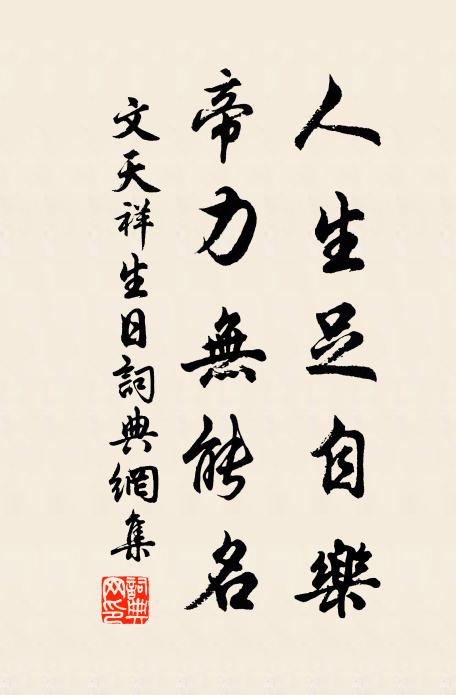 人生足自樂
帝力無能名
文天祥生日詞典網集
詞典网印